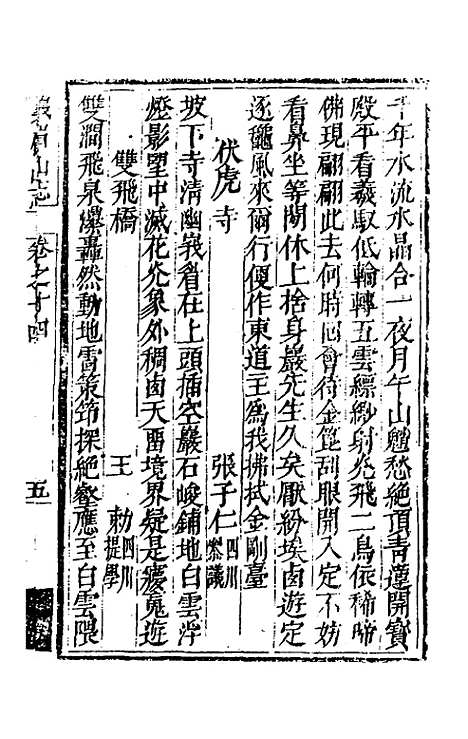 千年水流水晶合一夜月午山魈愁絕頂青蓮開寶
殿平看羲馭低輪轉五雲縹緲射光飛二鳥依稀啼
佛現翩翩此去何時回會待金篦刮眼開入定不妨
看鼻坐等閒休上捨身巖先生久矣厭紛埃卤遊定
逐颿風來爾行便作東道王為我拂拭金剛臺
伏虎寺 張子仁四川叅議
坡下寺清幽峩眉在上頭插空巖石峻鋪地白雲浮
燈影望中滅花光象外稠卤天畱境界疑是夢䰟遊
雙飛橋 王勅四川提學
雙澗飛泉瀑轟然動地雷策筇探絕壑應至白雲隈
峩眉山志 卷之十四 五